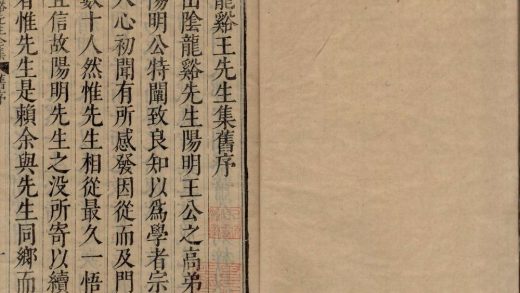 龍谿王先生集舊序
山陰龍谿先生陽明王公之高弟
陽明公特闡致良知以為學者宗
人心初聞有所感發因從而及門
數十人然惟先生相從最久一悟
直信故陽明先生之没所寄以續
者惟先生是賴余與先生同鄉而
舊序 一